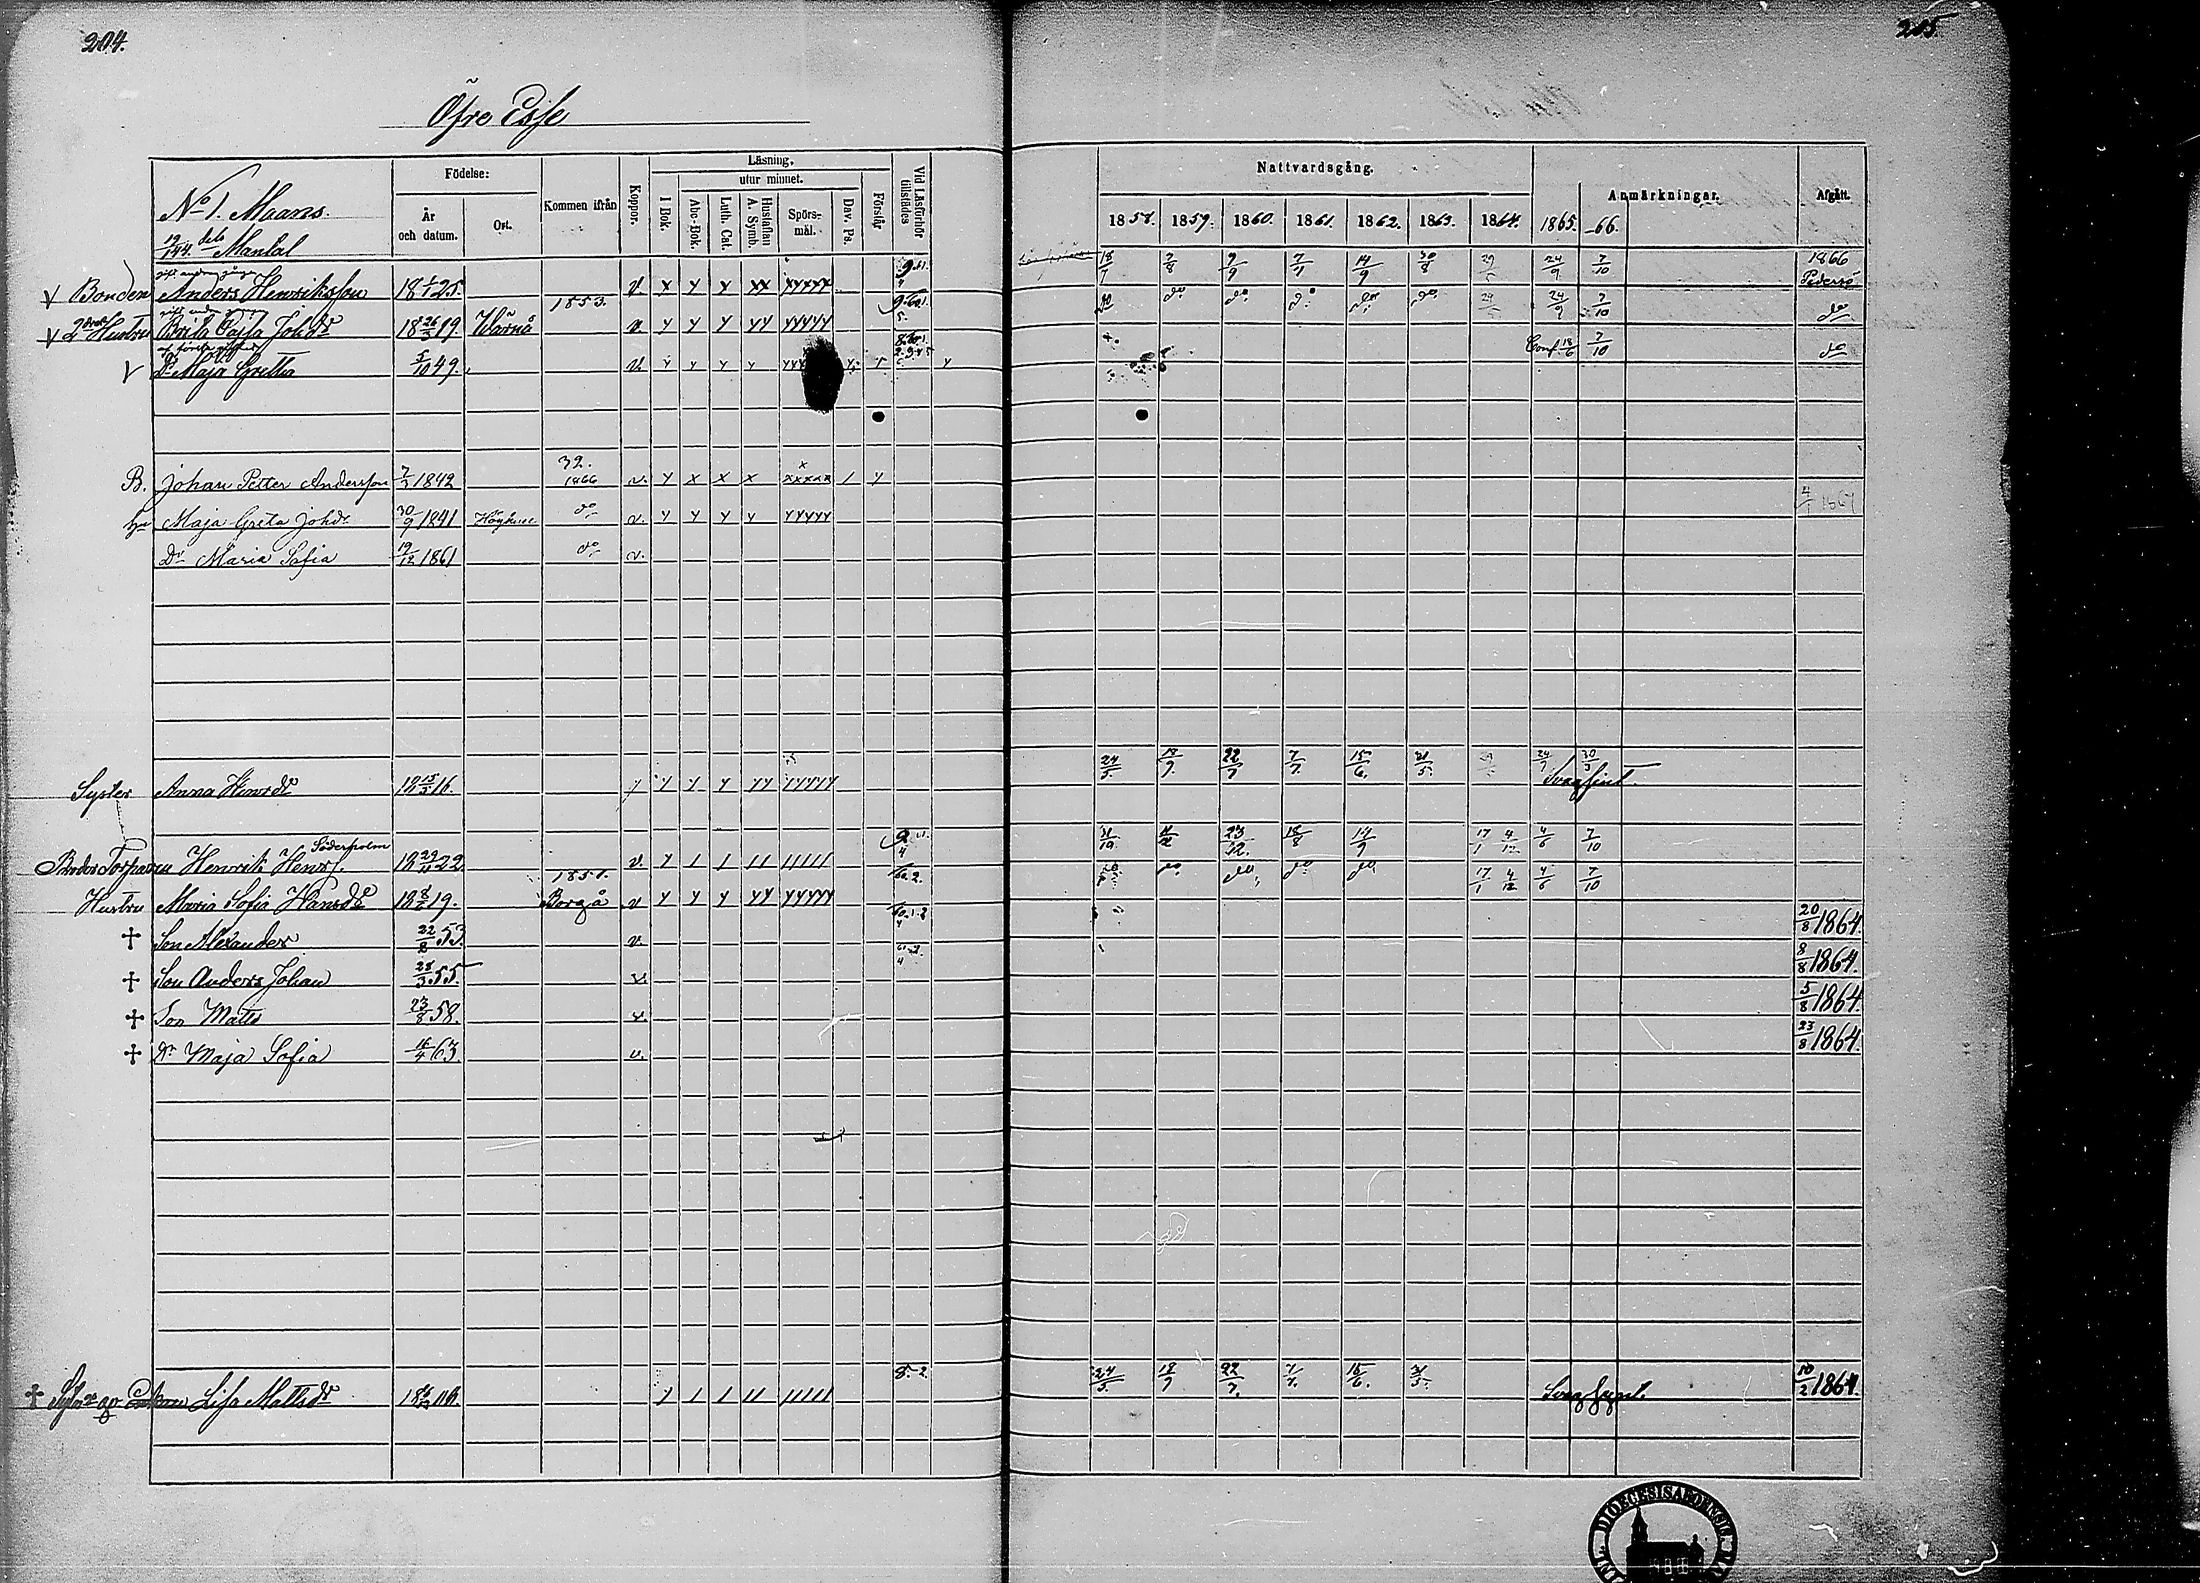 204.
205.
Öfre Esse
No 1. Maans.
12/144 dels Mantal
Födelse:
År och datum.
Ort.
Kommen ifrån
Koppor.
Läsning,
utur minnet.
I Bok.
Abc-Bok.
Luth. Cat.
Hustaflan A. Symb.
Spörs-mål.
Dav. Ps.
Förstår
Vid Läsförhör tillstädes
Nattvardsgång.
1858. 1859. 1860. 1861. 1862. 1863. 1864. 1865. -66.
Anmärkningar.
Afgått.
gift andra gången
v Bonden Anders Henriksson 18 25. v. x y y xx xxxxx 18/7 7/8 9/9 7/7 14/9 30/8 24/9 7/10 1866 Pedersö
v 2dra Hustru Brita Cajsa Johsdr 18 26/3 19 1853. v y y y yy yyyyy do do do do do do 24/9 7/10 do
v Dr Maja Gretta 5/10 49. v. y y y y Conf. 18/6 7/10 do
B. Johan Petter Andersson 7/7 1842 32. 1866 v. y x x x xxxxx / y
hu Maja Greta Johdr 30/9 1841 do v. y y y y yyyyy
Dr Maria Sofia 19/12 1861 do v.
Syster Anna Henrdr 18 15/5 16. y y y y yy yyyyy 24/5. 18/7. 22/7 7/7. 15/6. 31/5. 24/7 30/3 Svagsint.
Broder Torparen Henrik Henrs. Söderholm 18 29/11 22. v. y / / // ///// 11/12 23/12. 18/8 14/9 17/1 4/12 4/6 7/10
Hustru Maria Sofia Hansdr 18 8/2 19. 1851. Borgå v y y y yy yyyyy do do do do 17/1 4/12 4/6 7/10
† Son Alexander 22/8 53. v. 20/8 1864.
† Son Anders Johan 28/3 55. v. 8/8 1864.
† Son Matts 23/8 58. v. 5/8 1864.
† Dr Maja Sofia 16/4 63. v. 23/8 1864.
† Lisa Mattsdr 8.2 y / / // ///// 24/5. 18/7 22/7. 7/7. 15/6. 31/5. Svagsynt. 10/2 1864
DIOECESISARCHIV